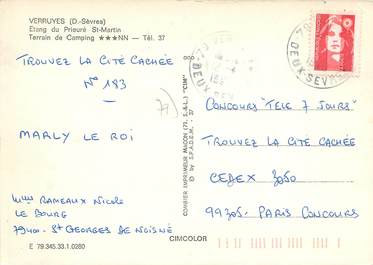 VERRUYES (D.-Sèvres)
Etang du Prieuré St-Martin
Terrain de Camping ★★★NN — Tél. 37
TROUVEZ LA CITÉ CACHÉE
N° 183
MARLY LE ROI
Mme RAMEAUX Nicole
LE BOURG
79400 - St GEORGES DE NOISNÉ
E 79.345.33.1.0280
COMBIER IMPRIMEUR MACON (71. S.-&-L.) "CIM"
© by S.P.A.D.E.M. 37
CIMCOLOR
DEUX-SEVRES
CONCOURS "TELE 7 JOURS"
TROUVEZ LA CITÉ CACHÉE
CEDEX 3050
99305 - PARIS CONCOURS